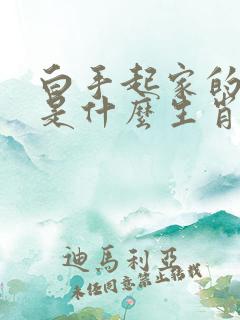 白手起家的
是什麼生肖
迪馬利亞
未经同意禁止转载